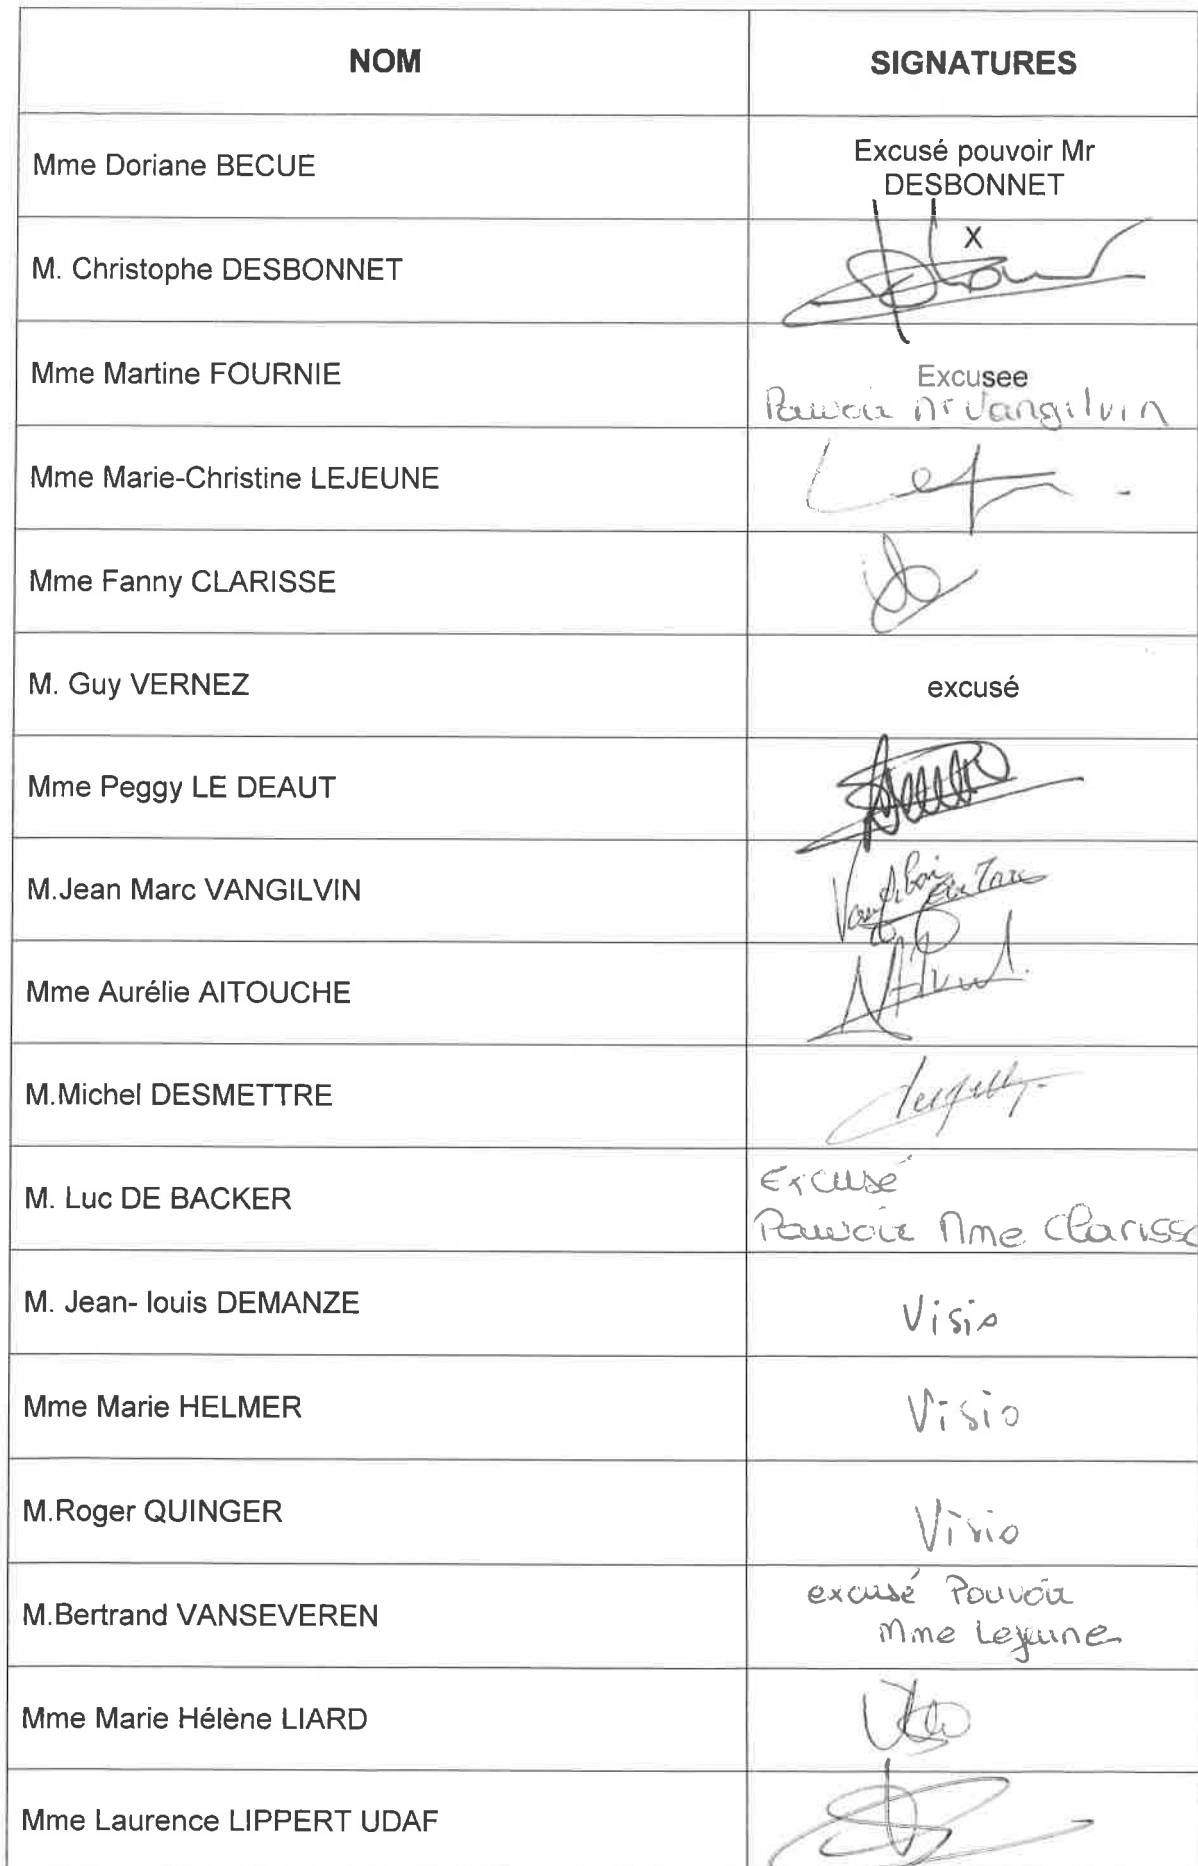 NOM
SIGNATURES
Mme Doriane BECUE
Excusé pouvoir Mr
DESBONNET
M. Christophe DESBONNET
X
Mme Martine FOURNIE
Excusee
Pouvoir Mr Vangilvin
Mme Marie-Christine LEJEUNE
Mme Fanny CLARISSE
M. Guy VERNEZ
excusé
Mme Peggy LE DEAUT
M.Jean Marc VANGILVIN
Mme Aurélie AITOUCHE
M.Michel DESMETTRE
M. Luc DE BACKER
Excusé
Pouvoir Mme Clarisse
M. Jean- louis DEMANZE
Visio
Mme Marie HELMER
Visio
M.Roger QUINGER
Visio
M.Bertrand VANSEVEREN
excusé Pouvoir
Mme Lejeune
Mme Marie Hélène LIARD
Mme Laurence LIPPERT UDAF